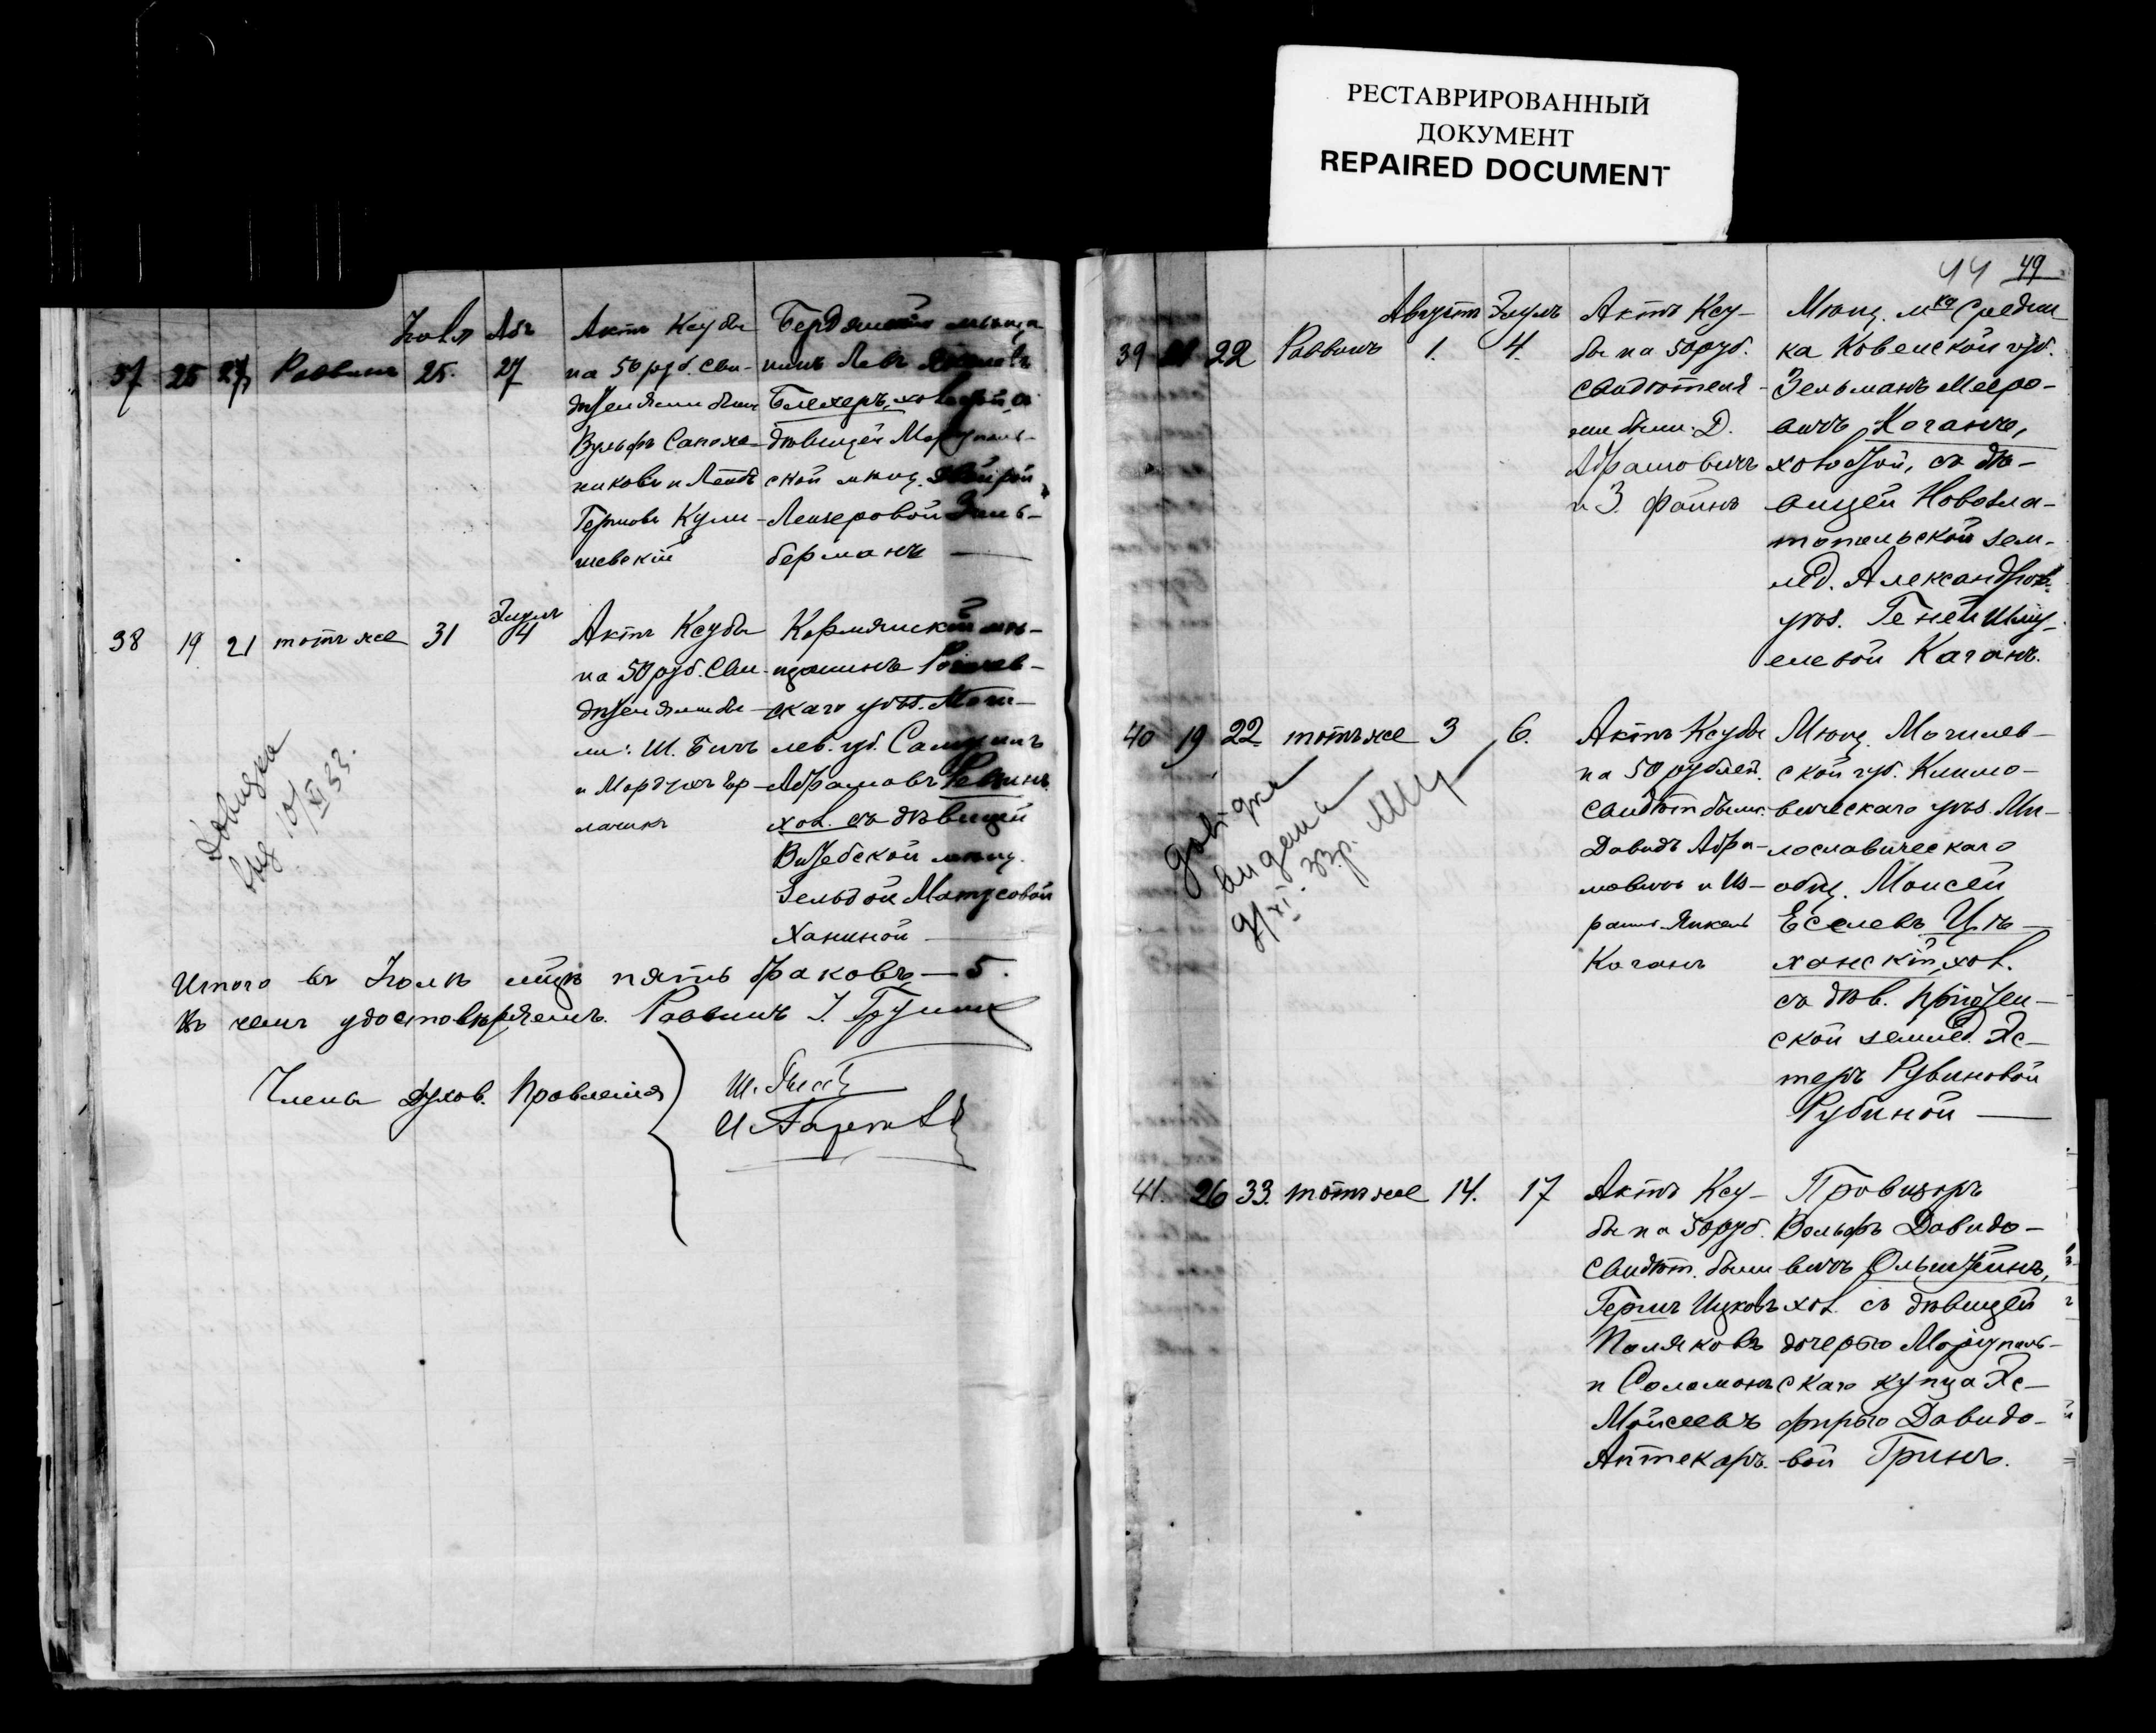 РЕСТАВРИРОВАННЫЙ
ДОКУМЕНТ
REPAIRED DOCUMENT
Іюля Абъ
37 25 27 Раввинъ 25. 27
Актъ Ксубы
на 50 руб. Сви-
дѣтелями были
Вульфъ Сапож-
никовъ и Лейбъ
Гершовъ Кули-
шевскій
Бердянскій мѣща
нинъ Левъ
Блехеръ, холостой, съ
дѣвицей Маріуполь-
ской мѣщ. Двейрой
Лейзеровой Зиль-
берманъ —
Элулъ
38 19 21 тотъ же 31 4
Актъ Ксубы
на 50 руб. Сви-
дѣтелями бы-
ли: Ш. Бичъ
и Мордухъ Ер-
Кормянскій мѣ-
щанинъ Рогачев-
скаго уѣз. Моги-
лев. губ. Самуилъ
Абрамовъ Ревинъ
хол. съ дѣвицей
Витебской мѣщ.
Зельдой Матусовой
Ханиной —
Довидка
вид 10/XI 33.
Итого въ Іюлѣ мцѣ пять браковъ — 5.
Въ чемъ удостовѣряемъ. Раввинъ І.
Члены Духов. Правленія
Ш.
И
44 49
Августъ Элулъ
39 21 22 Раввинъ 1. 4.
Актъ Ксу-
бы на 50 руб.
Свидѣтеля-
ми были: Д.
Абрамовичъ
и З. Файнъ
Мѣщ. мка Средни
ка Ковенской губ.
Зельманъ Мееро-
вичъ Каганъ,
холостой, съ дѣ-
вицей Новозла-
топольской зем-
лед. Александров.
уѣз. Геней Шму-
елевой Каганъ.
40 19 22 тотъ же 3 6.
Актъ Ксубы
на 50 рублей.
Свидѣт. были:
Давидъ Абра-
мовичъ и Из-
раиль Янкель
Каганъ
Мѣщ. Могилев-
ской губ. Климо-
вическаго уѣз. Ми-
лославическаго
общ. Моисей
Еселевъ Цы-
ханскій, хол.
съ дѣв. Пріютен-
ской землед. Эс-
терь Рувиновой
Рубиной —
довідка
видана
9/XI. 33р.
41. 26 33. тотъ же 14. 17
Актъ Ксу-
бы на 50 руб.
Свидѣт. были
Гершъ Ицковъ
Поляковъ
и Соломонъ
Мойсеевъ
Аптекарь.
Провизоръ
Вольфъ Давидо-
вичъ Ольштейнъ,
хол. съ дѣвицей
дочерью Маріуполь-
скаго купца Эс-
фирью Давидо-
вой Гринъ.